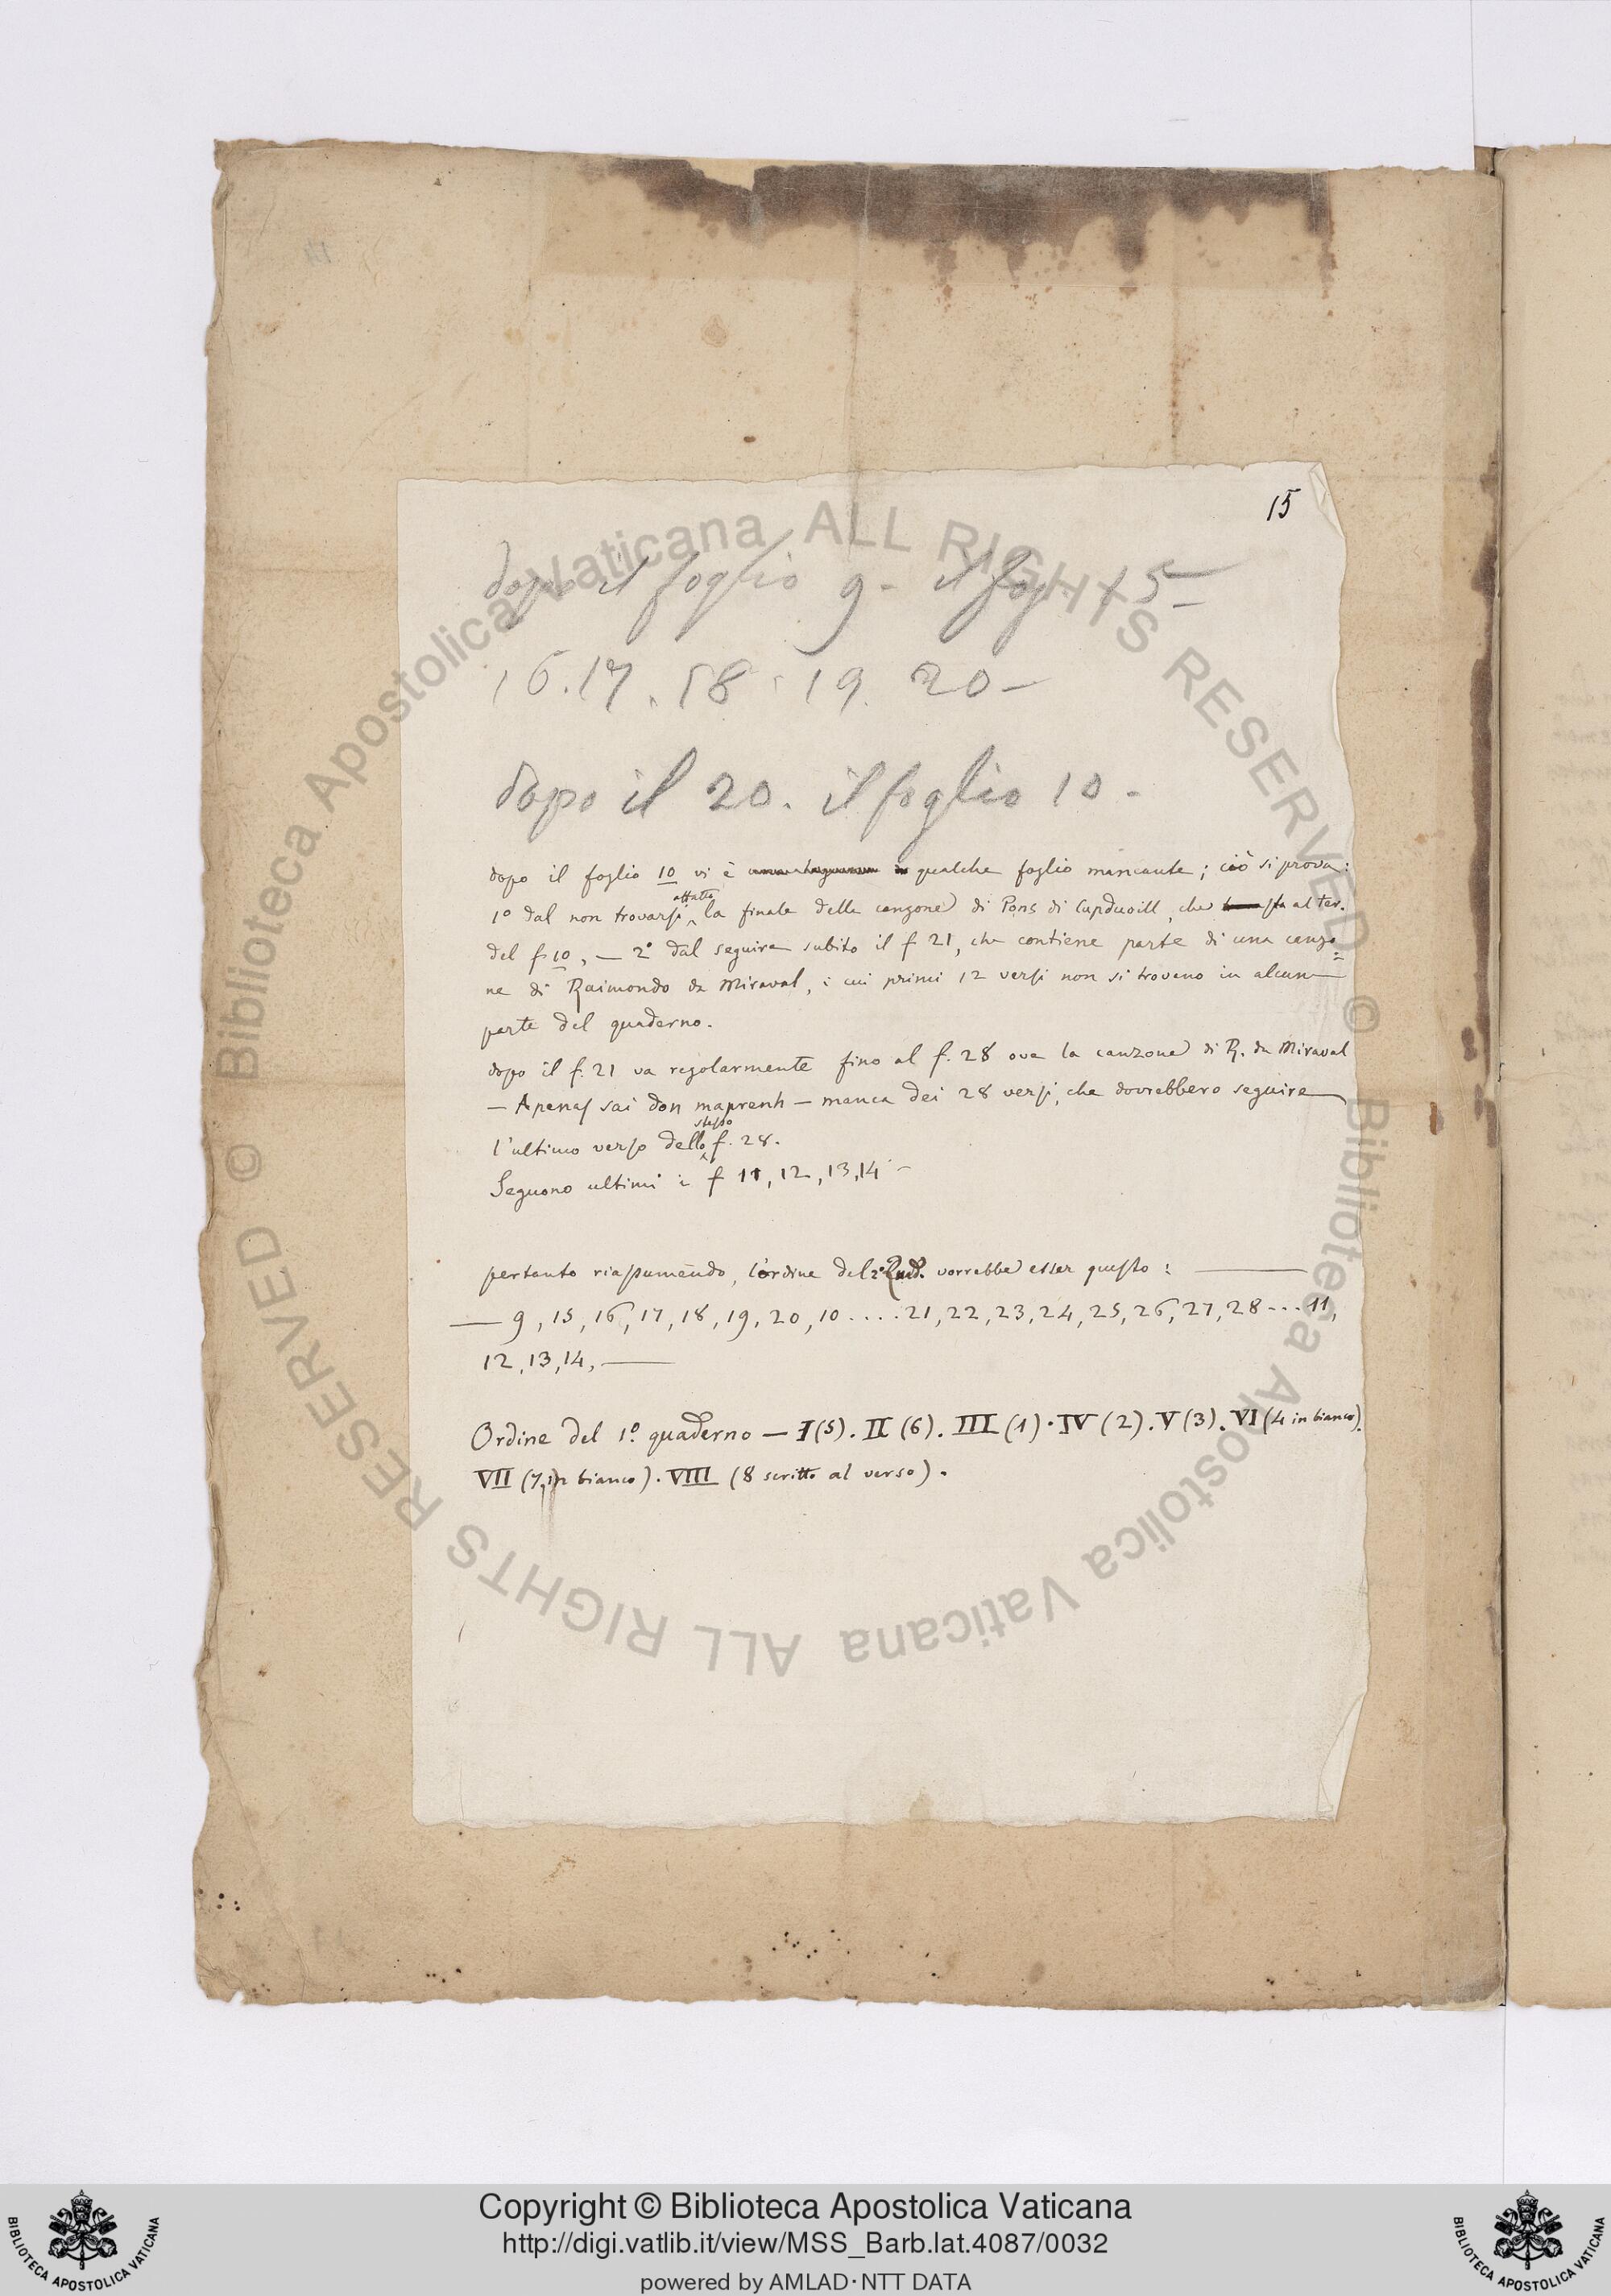 15
dopo il foglio 9 - il fog. 15 -
16. 17. 18. 19. 20 -
dopo il 20. il foglio 10 -
dopo il foglio 10 vi è qualche foglio mancante; ciò si prova:
1º dal non trovarsi affatto la finale della canzone di Pons di Capduoill, che sta al ter.
del f 10, — 2º dal seguire subito il f 21, che contiene parte di una canzo=
ne di Raimondo da Miraval, i cui primi 12 versi non si trovano in alcuna
parte del quaderno.
dopo il f. 21 va regolarmente fino al f. 28 ove la canzone di R. da Miraval
— Apenas sai don maprenh — manca dei 28 versi, che dovrebbero seguire
l'ultimo verso dello stesso f. 28.
Seguono ultimi i f 11, 12, 13, 14 -
pertanto riassumendo, l'ordine del 2º Quad. vorrebbe esser questo: ——
— 9, 15, 16, 17, 18, 19, 20, 10 .... 21, 22, 23, 24, 25, 26, 27, 28 ... 11,
12, 13, 14, ——
Ordine del 1º. quaderno — I (5). II (6). III (1). IV (2). V (3). VI (4 in bianco).
VII (7, in bianco). VIII (8 scritto al verso).
© Biblioteca Apostolica Vaticana ALL RIGHTS RESERVED
© Biblioteca Apostolica Vaticana ALL RIGHTS RESERVED
Copyright © Biblioteca Apostolica Vaticana
http://digi.vatlib.it/view/MSS_Barb.lat.4087/0032
powered by AMLAD·NTT DATA
BIBLIOTECA APOSTOLICA VATICANA
BIBLIOTECA APOSTOLICA VATICANA